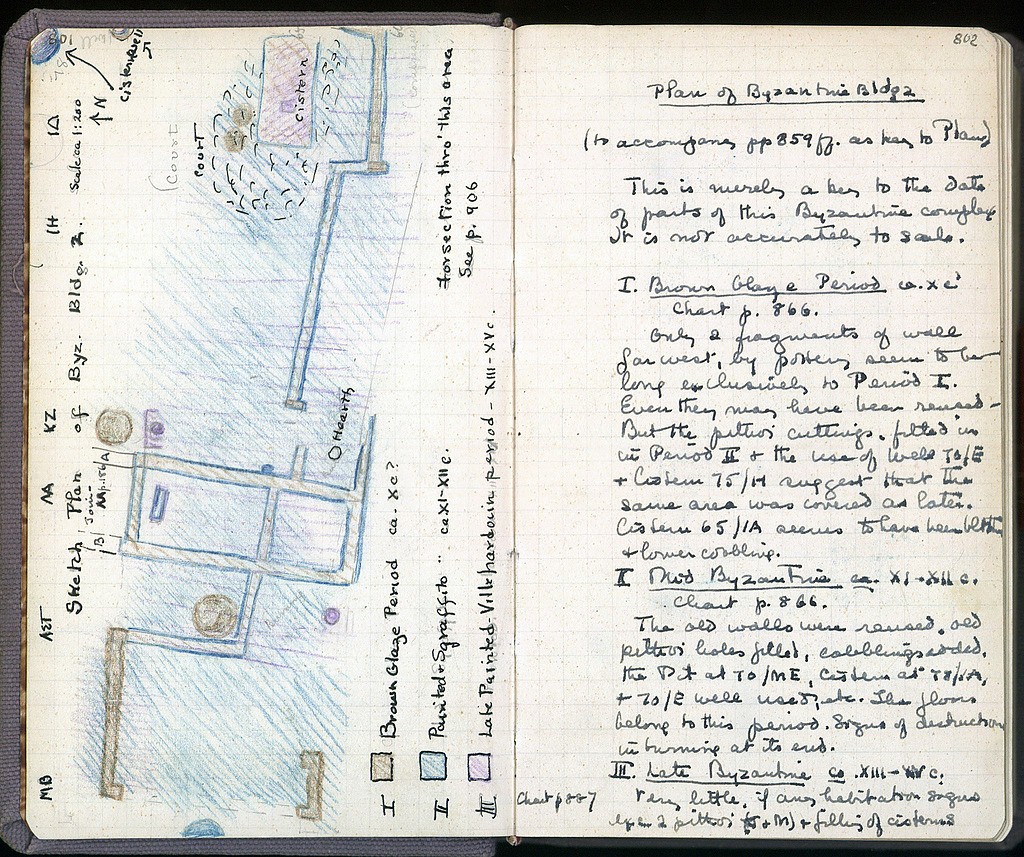 801
Cistern/Well
N
Scale ca 1:200
ΜΒ
ΛΣΤ
ΛΑ
ΚΖ
ΙΗ
ΙΔ
Sketch Plan of Byz. Bldg. 2.
(Court
Court
Cistern
Hearth
For section thro' this area
See p. 906
I Brown Glaze Period ca. Xc?
II Painted & Sgraffito " ca XI-XII c.
III Late Painted-Villehardouin period - XIII-XV c.
802
Plan of Byzantine Bldg 2
(to accompany pp 859 ff. as key to Plan)
This is merely a key to the date
of parts of this Byzantine complex
It is not accurately to scale.
I. Brown Glaze Period ca. X c
Chart p. 866.
Only 2 fragments of wall
far west, by pottery seem to be
long exclusively to Period I.
Even they may have been reused -
But the pithoi cuttings, filled in
in Period II + the use of Well 70/E
+ Cistern 75/H suggest that the
same area was covered as later.
Cistern 65/IA seems to have been
+ lower cobbling.
II Mid Byzantine ca. XI-XII c.
Chart p. 866.
The old walls were reused, old
pithoi holes filled, cobblings added,
the Pit at 70/ME, Cistern at
+ 70/E well used, etc. The floors
belong to this period. Signs of destruction
in burning at its end.
III. Late Byzantine ca XIII-XV c.
Chart p 887
Very little, if any habitation signs
2 pithoi + filling of cisterns